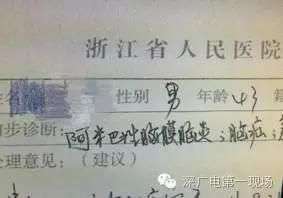 浙江省人民医院
性别 男 年龄 43 籍
初步诊断:
阿米巴性脑膜脑炎;脑疝;
处理意见:(建议)
深广电第一现场